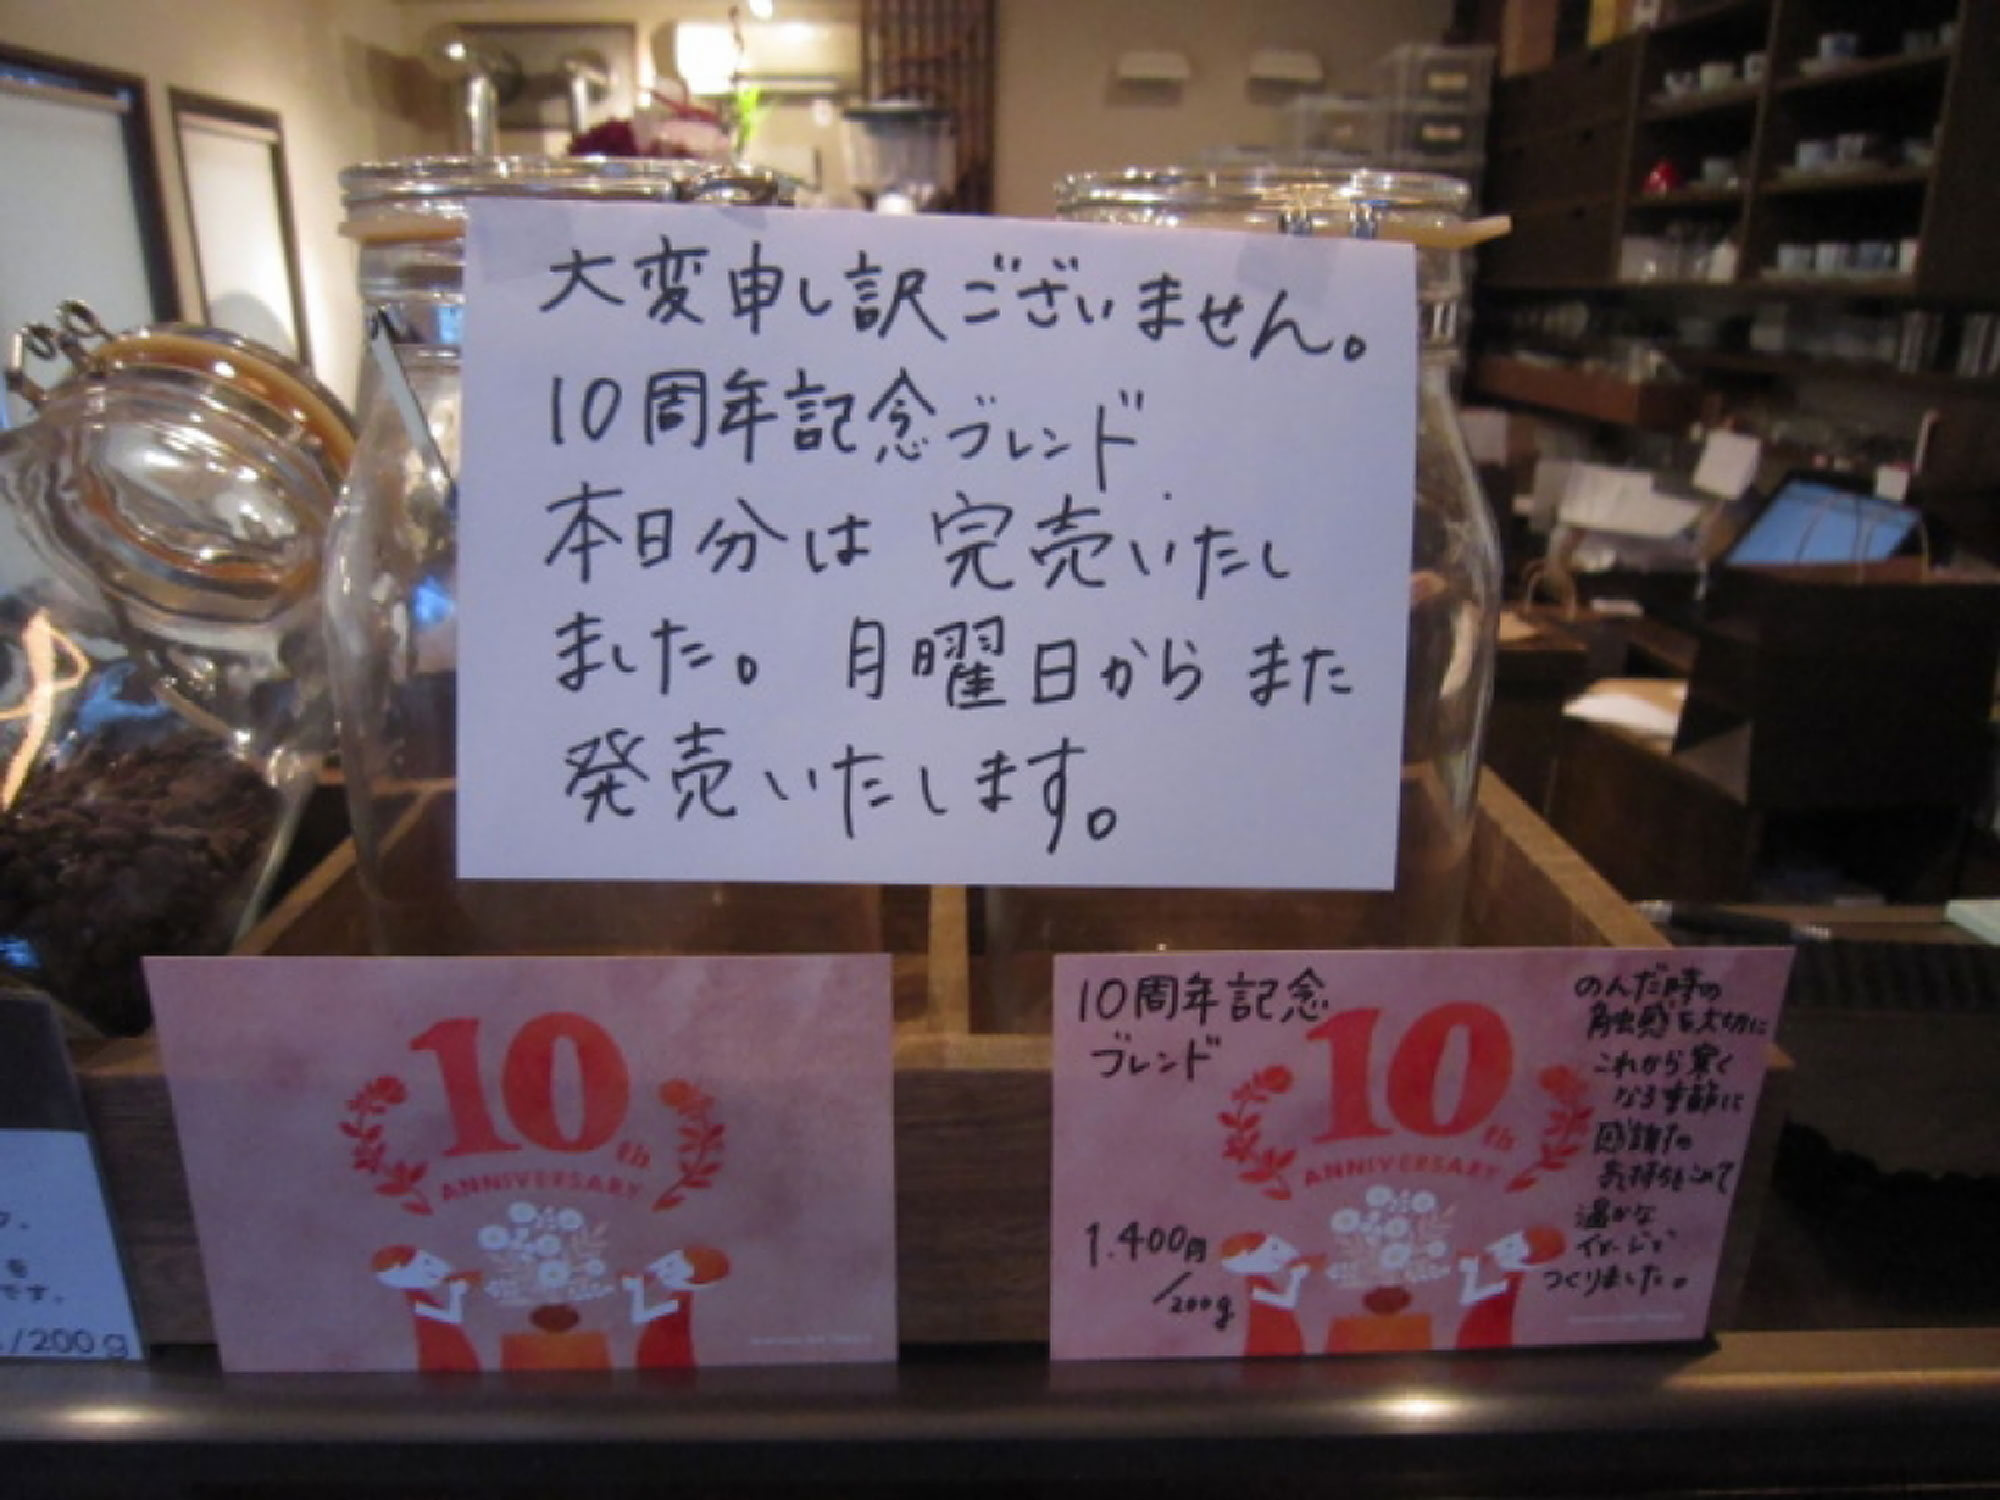 大変申し訳ございません。
10周年記念ブレンド
本日分は 完売いたし
ました。 月曜日から また
発売いたします。
10th
ANNIVERSARY
10周年記念
ブレンド
10th
ANNIVERSARY
1.400円
/200g
のんだ時の
触感を大切に
これから寒く
なる季節に
感謝の
気持ちをこめて
温かな
イメージで
つくりました。
を
です。
/200g